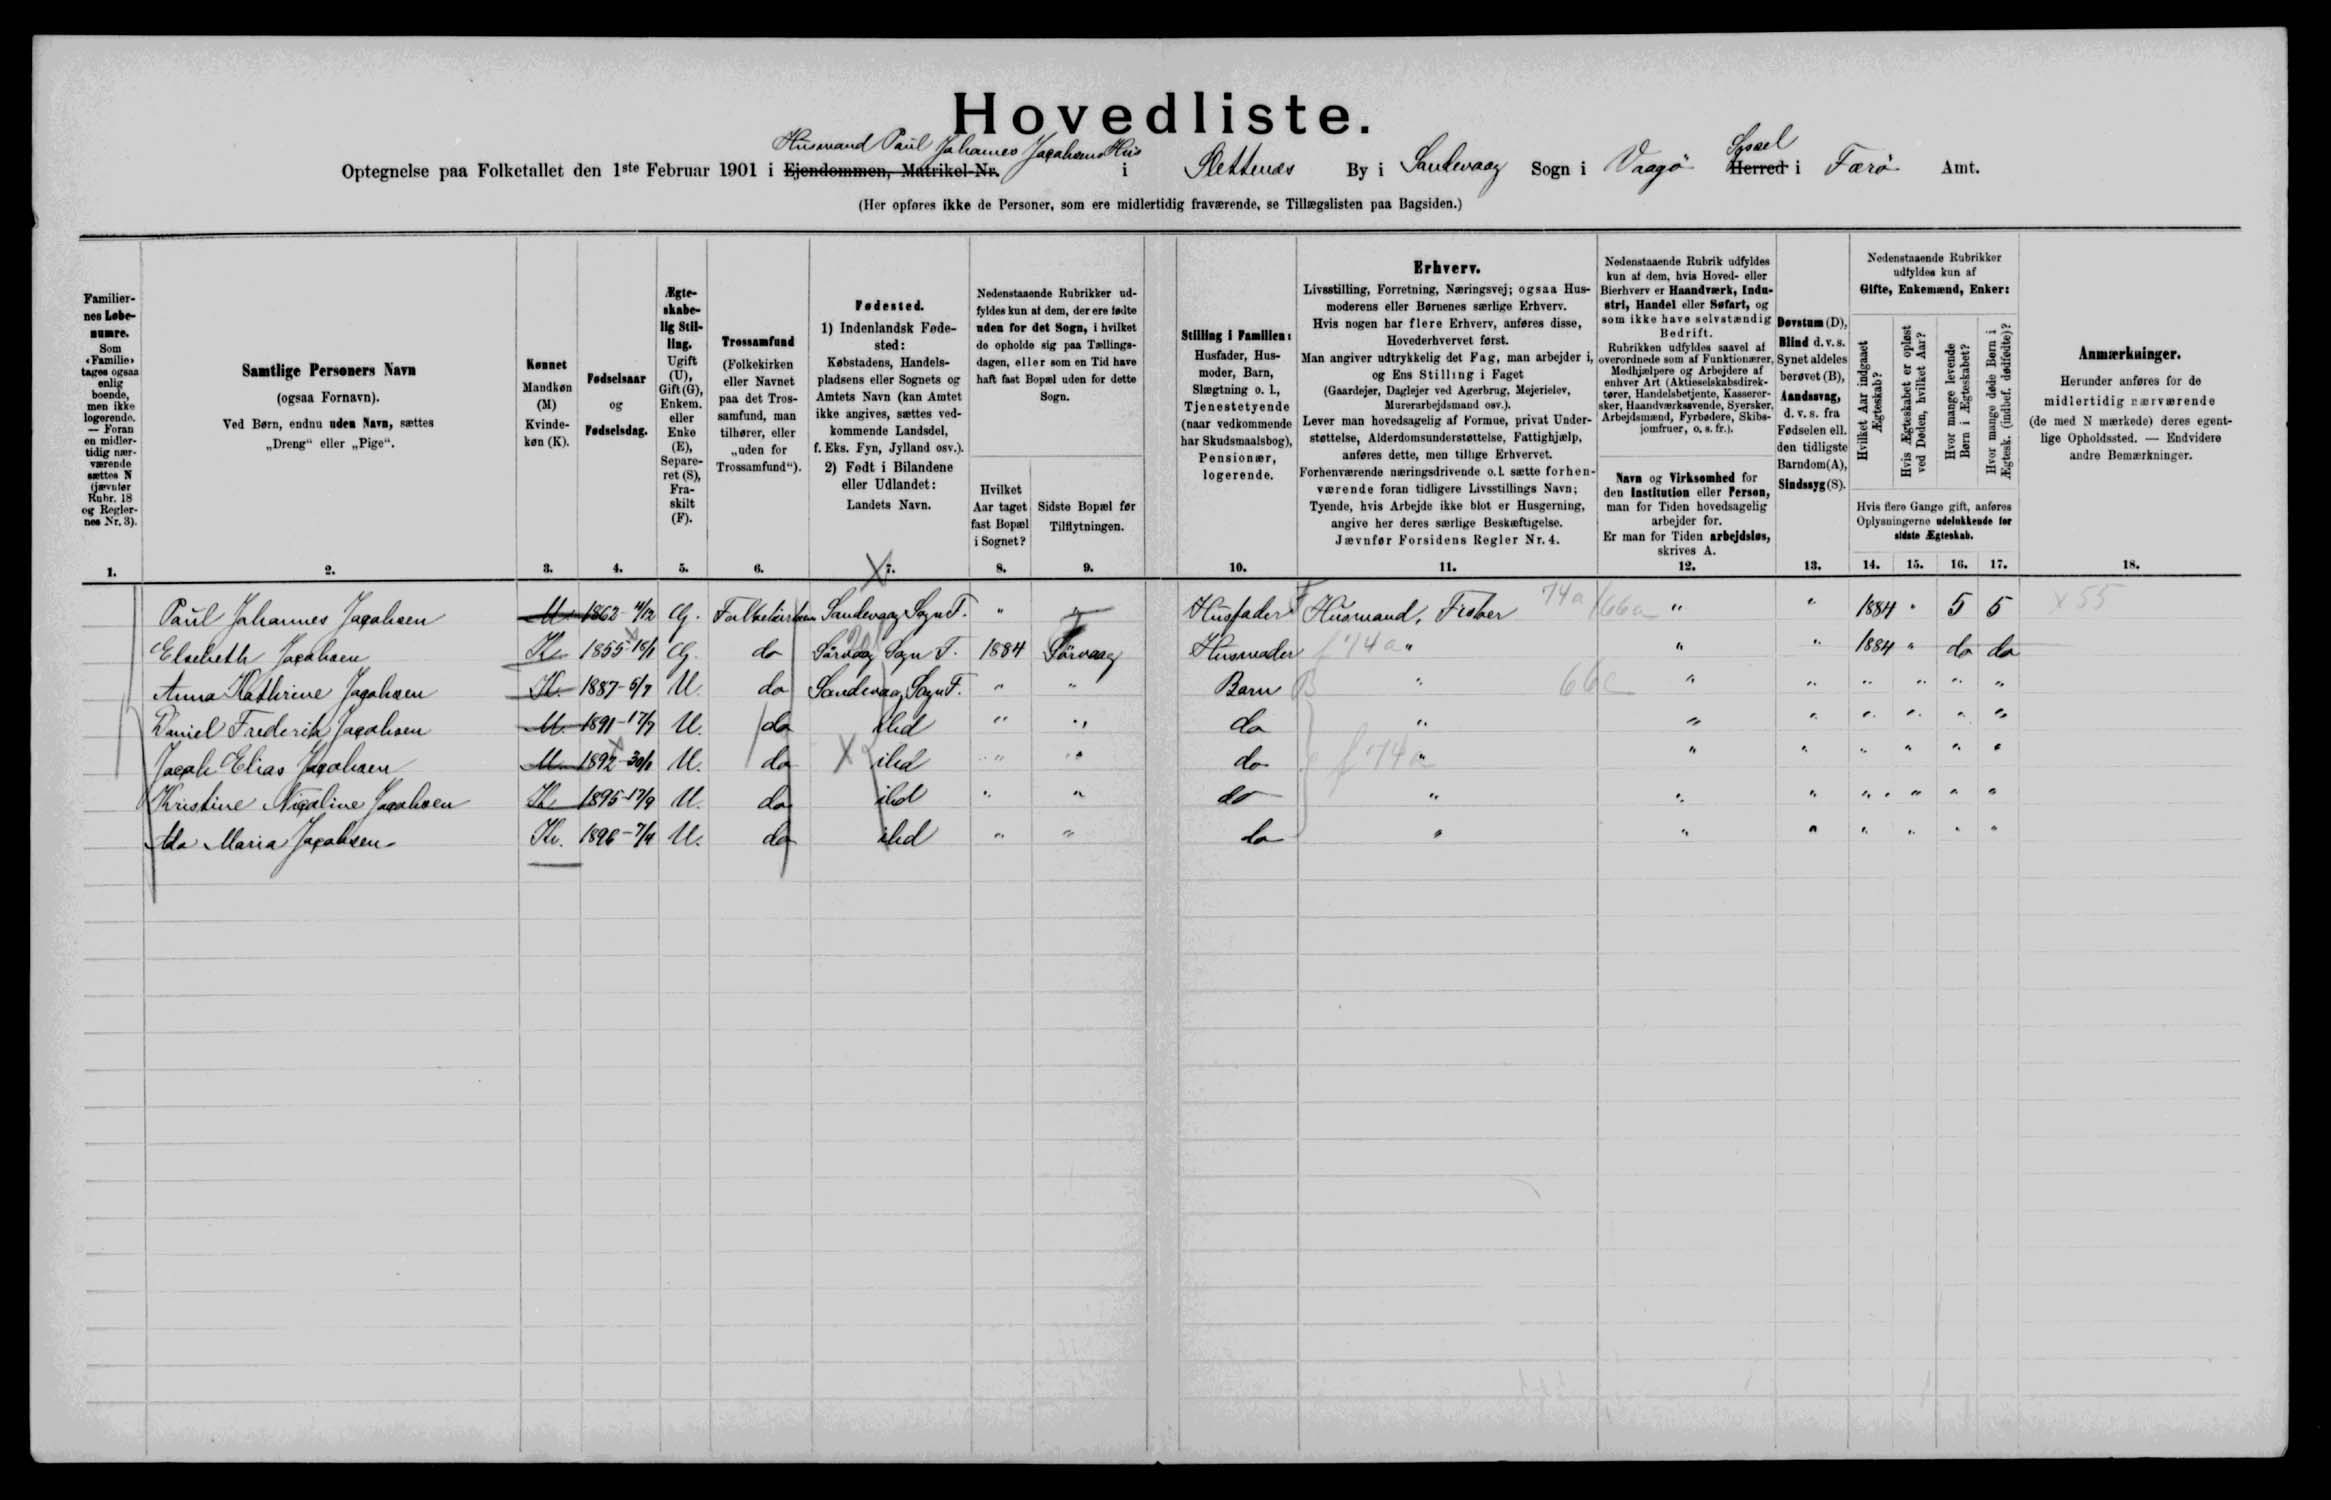 Hovedliste.
Husmand Paul Johannes Jacobsens Hus Syssel
Optegnelse paa Folketallet den 1ste Februar 1901 i Ejendommen, Matrikel-Nr. i Slettenæs By i Sandevaag Sogn i Vaagö Herred i Færö Amt.
(Her opføres ikke de Personer, som ere midlertidig fraværende, se Tillægslisten paa Bagsiden.)
Familiernes Løbenumre.
Som
«Familie»
tages ogsaa
enlig
boende,
men ikke
logerende.
— Foran
en midler-
tidig nær-
værende
sættes N
(jævnfør
Rubr. 18
og Regler-
nes Nr. 3).
1.
Samtlige Personers Navn
(ogsaa Fornavn).
Ved Børn, endnu uden Navn, sættes
„Dreng“ eller „Pige“.
2.
Kønnet
Mandkøn
(M)
Kvinde-
køn (K).
3.
Fødselsaar
og
Fødselsdag.
4.
Ægte-
skabe-
lig Stil-
ling.
Ugift
(U),
Gift (G),
Enkem.
eller
Enke
(E),
Separe-
ret (S),
Fra-
skilt
(F).
5.
Trossamfund
(Folkekirken
eller Navnet
paa det Tros-
samfund, man
tilhører, eller
„uden for
Trossamfund“).
6.
Fødested.
1) Indenlandsk Føde-
sted:
Købstadens, Handels-
pladsens eller Sognets og
Amtets Navn (kan Amtet
ikke angives, sættes ved-
kommende Landsdel,
f. Eks. Fyn, Jylland osv.).
2) Født i Bilandene
eller Udlandet:
Landets Navn.
7.
Nedenstaaende Rubrikker ud-
fyldes kun af dem, der ere fødte
uden for det Sogn, i hvilket
de opholde sig paa Tællings-
dagen, eller som en Tid have
haft fast Bopæl uden for dette
Sogn.
Hvilket
Aar taget
fast Bopæl
i Sognet?
8.
Sidste Bopæl før
Tilflytningen.
9.
Stilling i Familien:
Husfader, Hus-
moder, Barn,
Slægtning o. l.,
Tjenestetyende
(naar vedkommende
har Skudsmaalsbog),
Pensionær,
logerende.
10.
Erhverv.
Livsstilling, Forretning, Næringsvej; ogsaa Hus-
moderens eller Børnenes særlige Erhverv.
Hvis nogen har flere Erhverv, anføres disse,
Hovederhvervet først.
Man angiver udtrykkelig det Fag, man arbejder i,
og Ens Stilling i Faget
(Gaardejer, Daglejer ved Agerbrug, Mejerielev,
Murerarbejdsmand osv.).
Lever man hovedsagelig af Formue, privat Under-
støttelse, Alderdomsunderstøttelse, Fattighjælp,
anføres dette, men tillige Erhvervet.
Forhenværende næringsdrivende o. l. sætte forhen-
værende foran tidligere Livsstillings Navn;
Tyende, hvis Arbejde ikke blot er Husgerning,
angive her deres særlige Beskæftigelse.
Jævnfør Forsidens Regler Nr. 4.
11.
Nedenstaaende Rubrik udfyldes
kun af dem, hvis Hoved- eller
Bierhverv er Haandværk, Indu-
stri, Handel eller Søfart, og
som ikke have selvstændig
Bedrift.
Rubrikken udfyldes saavel af
overordnede som af Funktionærer,
Medhjælpere og Arbejdere af
enhver Art (Aktieselskabsdirek-
tører, Handelsbetjente, Kasserer-
sker, Haandværkssvende, Syersker,
Arbejdsmænd, Fyrbødere, Skibs-
jomfruer, o. s. fr.).
Navn og Virksomhed for
den Institution eller Person,
man for Tiden hovedsagelig
arbejder for.
Er man for Tiden arbejdsløs,
skrives A.
12.
Døvstum (D),
Blind d. v. s.
Synet aldeles
berøvet (B),
Aandssvag,
d. v. s. fra
Fødselen ell.
den tidligste
Barndom (A),
Sindssyg (S).
13.
Nedenstaaende Rubrikker
udfyldes kun af
Gifte, Enkemænd, Enker:
Hvilket Aar indgaaet
Ægteskab?
Hvis Ægteskabet er opløst
ved Døden, hvilket Aar?
Hvor mange levende
Børn i Ægteskabet?
Hvor mange døde Børn i
Ægtesk. (indbef. dødfødte)?
Hvis flere Gange gift, anføres
Oplysningerne udelukkende for
sidste Ægteskab.
14. 15. 16. 17.
Anmærkninger.
Herunder anføres for de
midlertidig nærværende
(de med N mærkede) deres egent-
lige Opholdssted. — Endvidere
andre Bemærkninger.
18.
Paul Johannes Jacobsen M 1862-4/12 G. Folkekirken Sandevaag Sogn F. " " Husfader Husmand, Fisker 74a 66a " " 1884 " 5 5 x 55
Elsebeth Jacobsen K 1855-16/1 G. do Sörvaag Sogn F. 1884 Sörvaag Husmoder f 74a " " " 1884 " do do
Anna Kathrine Jacobsen K 1887-5/7 U. do Sandevaag Sogn F. " " Barn " 66c " " " " " "
Daniel Frederik Jacobsen M 1891-17/7 U. do ibid " " do " " " " " " "
Jacob Elias Jacobsen M 1892-30/1 U. do ibid " " do f 74a " " " " " " "
Kristine Nicoline Jacobsen K 1895-17/9 U. do ibid " " do " " " " " " "
Ada Maria Jacobsen K. 1896-7/4 U. do ibid " " do " " " " " " "